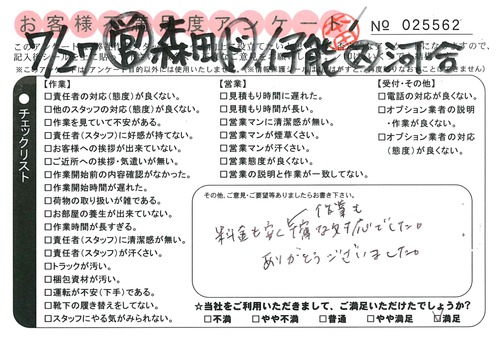 お客様不満足度アンケート
№ 025562
7/27 営 森田 伊能 河合
チェックリスト
【作業】
□責任者の対応(態度)が良くない。
□他のスタッフの対応(態度)が良くない。
□作業を見ていて不安がある。
□責任者(スタッフ)に好感が持てない。
□お客様への挨拶が出来ていない。
□ご近所への挨拶・気遣いが無い。
□作業開始前の内容確認がなかった。
□作業開始時間が遅れた。
□荷物の取り扱いが雑である。
□お部屋の養生が出来ていない。
□作業時間が長すぎる。
□責任者(スタッフ)に清潔感が無い。
□責任者(スタッフ)が汗くさい。
□トラックが汚い。
□梱包資材が汚い。
□運転が不安(下手)である。
□靴下の履き替えをしてない。
□スタッフにやる気がみられない。
【営業】
□見積もり時間に遅れた。
□見積もり時間が長い。
□営業マンに清潔感が無い。
□営業マンが煙草くさい。
□営業マンが汗くさい。
□営業態度が良くない。
□営業の説明と作業が一致してない。
【受付・その他】
□電話の対応が良くない。
□オプション業者の説明
・作業が良くない。
□オプション業者の対応
(態度)が良くない。
その他、ご意見・ご要望等ありましたらお書き下さい。
作業も
料金も安く丁寧な対応でした。
ありがとうございました。
☆当社をご利用いただきまして、ご満足いただけたでしょうか?
□不満 □やや不満 □普通 □やや満足 ☑満足